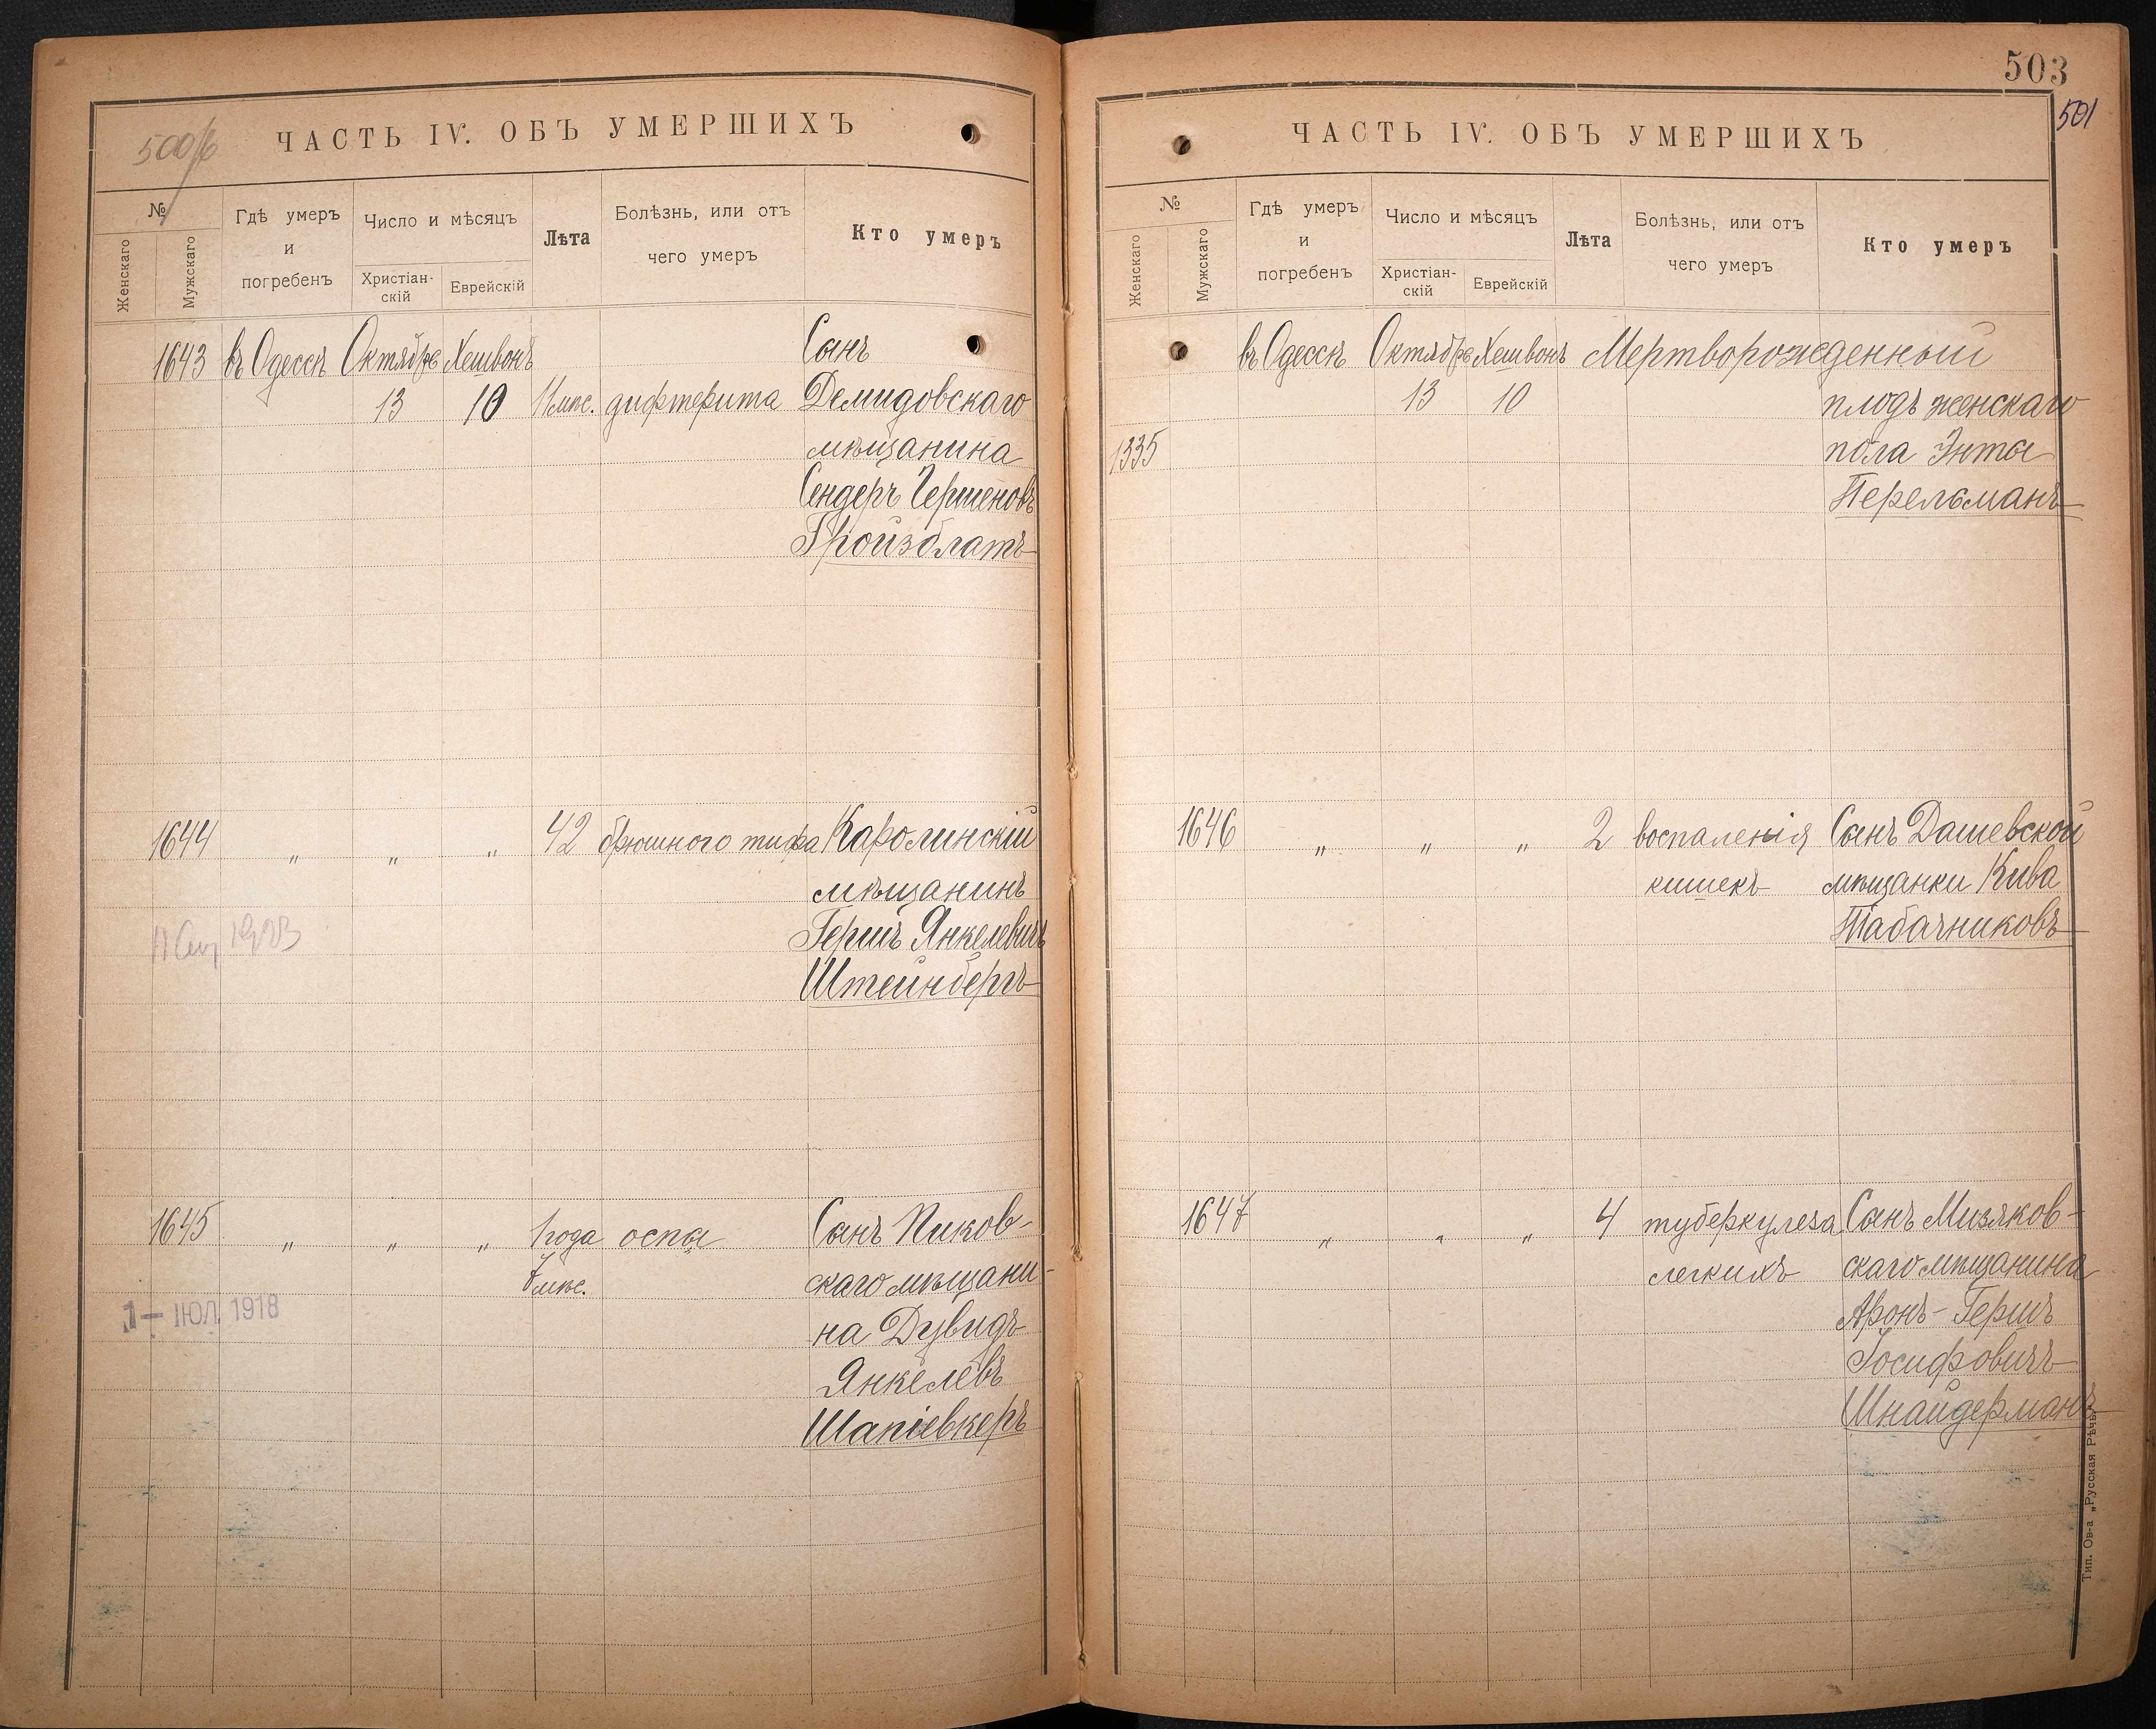 500/б
ЧАСТЬ IV. ОБЪ УМЕРШИХЪ
№
Женскаго
Мужскаго
Гдѣ умеръ
и
погребенъ
Число и мѣсяцъ
Христіан-
скій
Еврейскій
Лѣта
Болѣзнь, или отъ
чего умеръ
Кто умеръ
1643 въ Одессѣ Октябрь Хешвонъ Сынъ
13 10 11 мѣс. дифтерита Демидовскаго
мѣщанина
Сендеръ Гершеновъ
Гройзблатъ
1644 „ „ „ 42 брюшного тифа Каролинскій
мѣщанинъ
Гершъ Янкелевичъ
Штейнбергъ
1923
1645 „ „ „ 1 года оспа Сынъ Пиков-
7 мѣс. скаго мѣщани-
на Дувидъ
Янкелевъ
Шапіевкеръ
1 — ІЮЛ 1918
503
501
ЧАСТЬ IV. ОБЪ УМЕРШИХЪ
№
Женскаго
Мужскаго
Гдѣ умеръ
и
погребенъ
Число и мѣсяцъ
Христіан-
скій
Еврейскій
Лѣта
Болѣзнь, или отъ
чего умеръ
Кто умеръ
въ Одессѣ Октябрь Хешвонъ Мертворожденный
13 10 плодъ женскаго
1335 пола Энты
Перельманъ
1646 „ „ „ 2 воспаленія Сынъ Дашевской
кишекъ мѣщанки Кива
Табачниковъ
1647 „ „ „ 4 туберкулеза Сынъ Мизяков-
легкихъ скаго мѣщанина
Аронъ-Гершъ
Іосифовичъ
Шнайдерманъ
Тип. Ов-а „Русская Рѣчь"